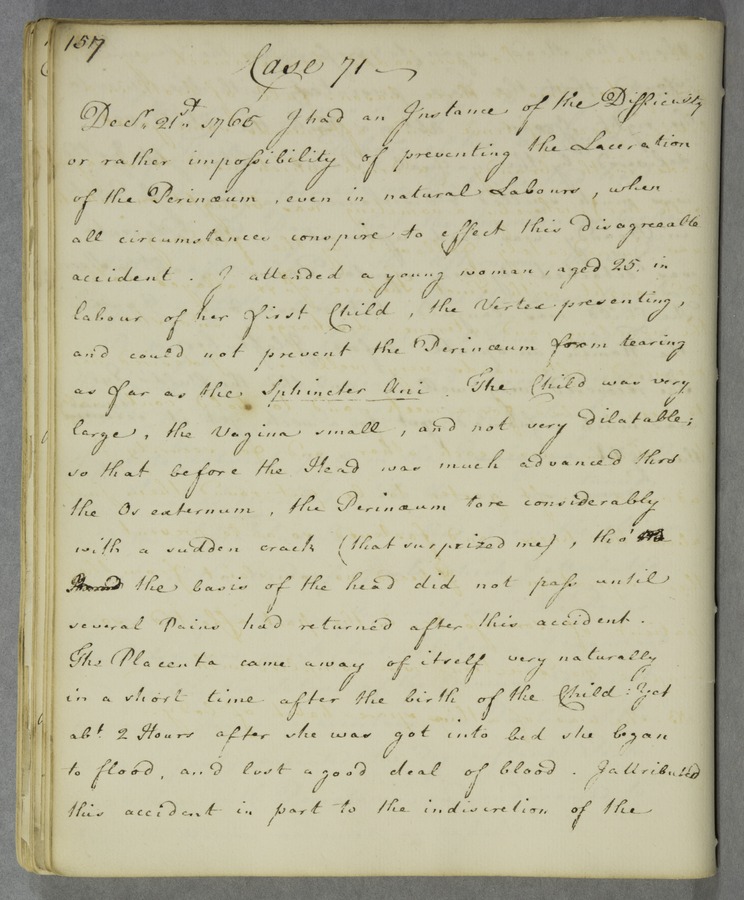 157
Case 71
Decr. 21st. 1765 I had an Instance of the Difficulty
or rather impossibility of preventing the Laceration
of the Perinæum, even in natural Labours, when
all circumstances conspire to effect this disagreeable
accident. I attended a young woman, aged 25. in
labour of her first Child, the Vertex presenting,
and could not prevent the Perinæum from tearing
as far as the Sphincter Ani. The Child was very
large, the Vagina small, and not very dilatable;
so that before the Head was much advanced thro
the Os externum, the Perinæum tore considerably
with a sudden crack (that surprized me), tho'
the basis of the head did not pass until
several Pains had returned after this accident.
The Placenta came away of itself very naturally
in a short time after the birth of the Child: Yet
abt. 2 Hours after she was got into bed she began
to flood, and lost a good deal of blood. I attributed
this accident in part to the indiscretion of the